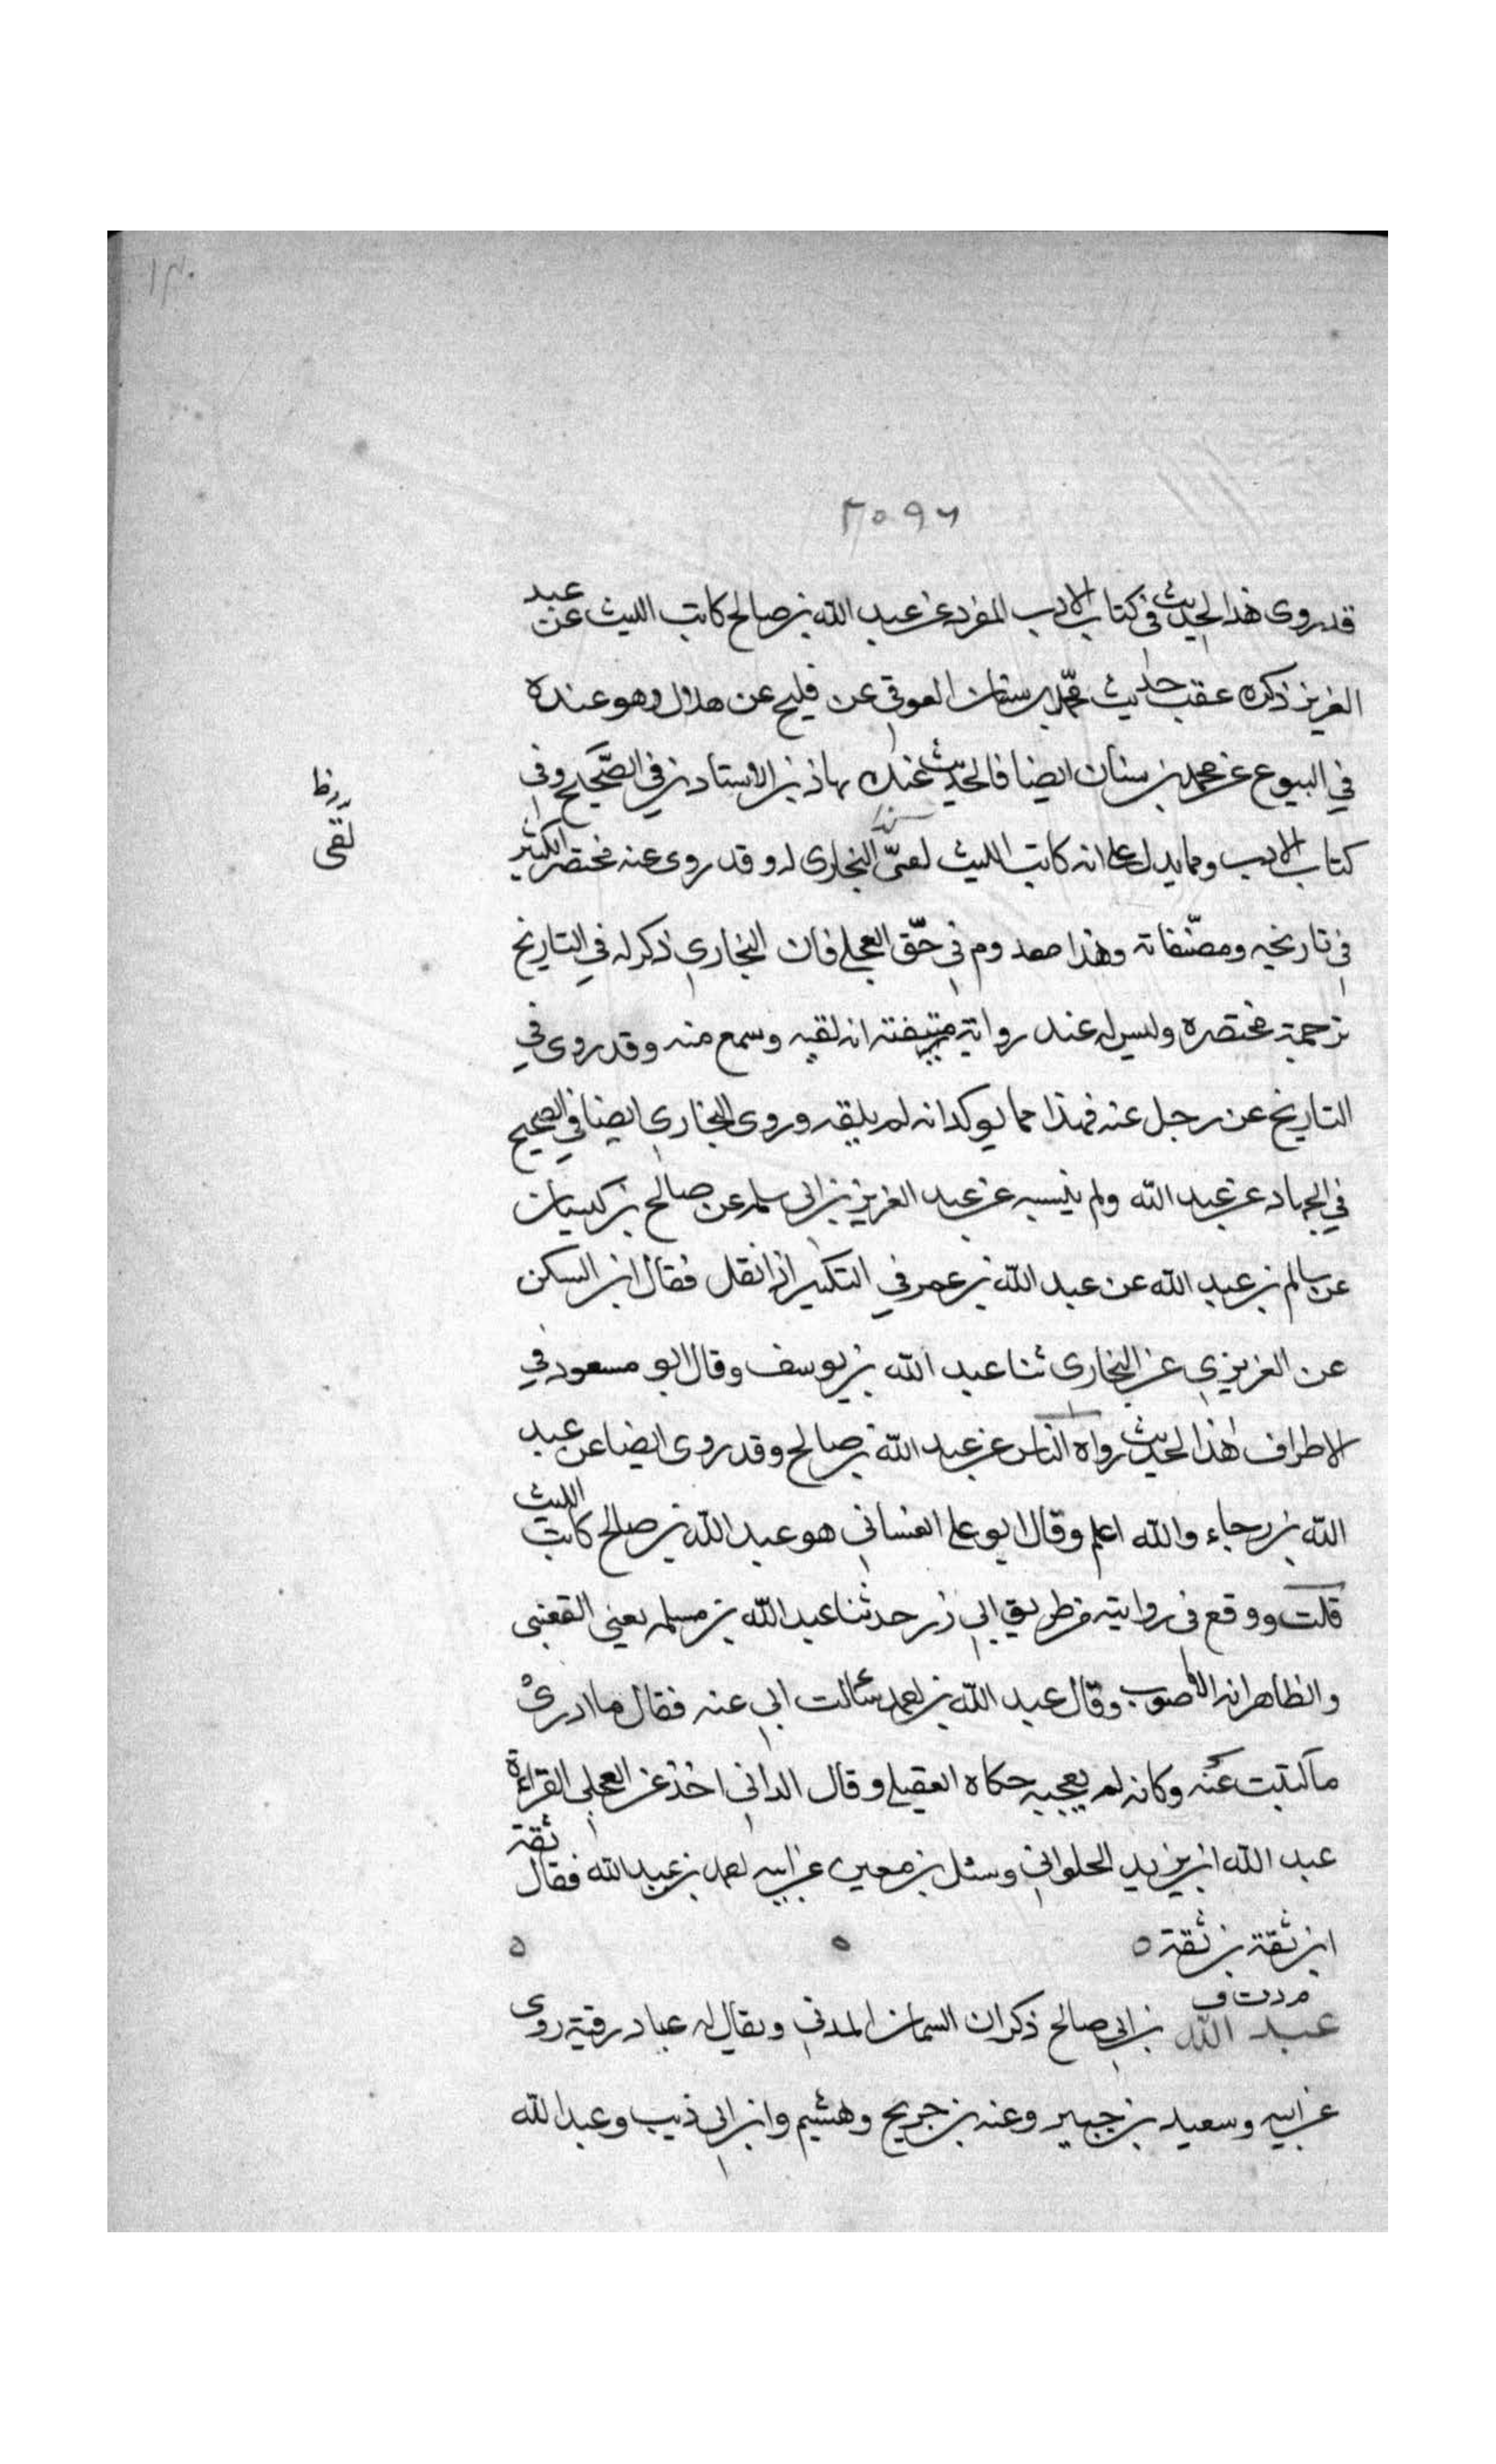 ١٣٠
٢٠٩٦
قد روى هذا الحديث في كتاب الادب المفرد عن عبد الله بن صالح كاتب الليث عن عبد
العزيز ذكره عقب حديث محمد بن سنان العوقي عن فليح عن هلال وهو عنده
في البيوع عن محمد بن سنان ايضا فالحديث عنده بهاذين الاسنادين في الصحيح وفي
كتاب الادب ومما يدل على انه كاتب الليث لقىّ البخاري له وقد روى عنه مختصر الكثير
لقى
في تاريخيه ومصنفاته وهذا معدوم في حق العجلي فان البخاري ذكر له في التاريخ
ترجمة مختصره وليس له عنده رواية انه لقيه وسمع منه وقد روى في
التاريخ عن رجل عنه فهذا مما يوكد انه لم يلقه وروى البخاري ايضا في الصحيح
في الجهاد عن عبد الله ولم ينسبه عن عبد العزيز بن ابي سلمه عن صالح بن كيسان
عن سالم بن عبد الله عن عبد الله بن عمر في التكبير اذا نقل فقال ابن السكن
عن العزيزي عن البخاري ثنا عبد الله بن يوسف وقال ابو مسعود في
الاطراف هذا الحديث رواه الناس عن عبد الله بن صالح وقد روى ايضا عن عبد
الله بن رجاء والله اعلم وقال ابو علي الغساني هو عبد الله بن صالح كاتب الليث
قلت ووقع في روايته من طريق ابي ذر حدثنا عبد الله بن مسلمه يعني القعنبي
والظاهر انه الاصوب وقال عبد الله بن احمد سالت ابي عنه فقال ما ادري
ما كتبت عنه وكانه لم يعجبه حكاه العقيلي وقال الداني اخذ عن العجلي القراءة
عبد الله ابن يزيد الحلواني وسئل بن معين عن ابيه احمد بن عبد الله فقال ثقة
ابن ثقة بن ثقة ٥ ٥ ٥
م د ت ق
عبد الله بن ابي صالح ذكران السمان المدني ويقال له عباد رقية روى
عن ابيه وسعيد بن جبير وعنه بن جريح وهشيم وابن ابي ذيب وعبد الله